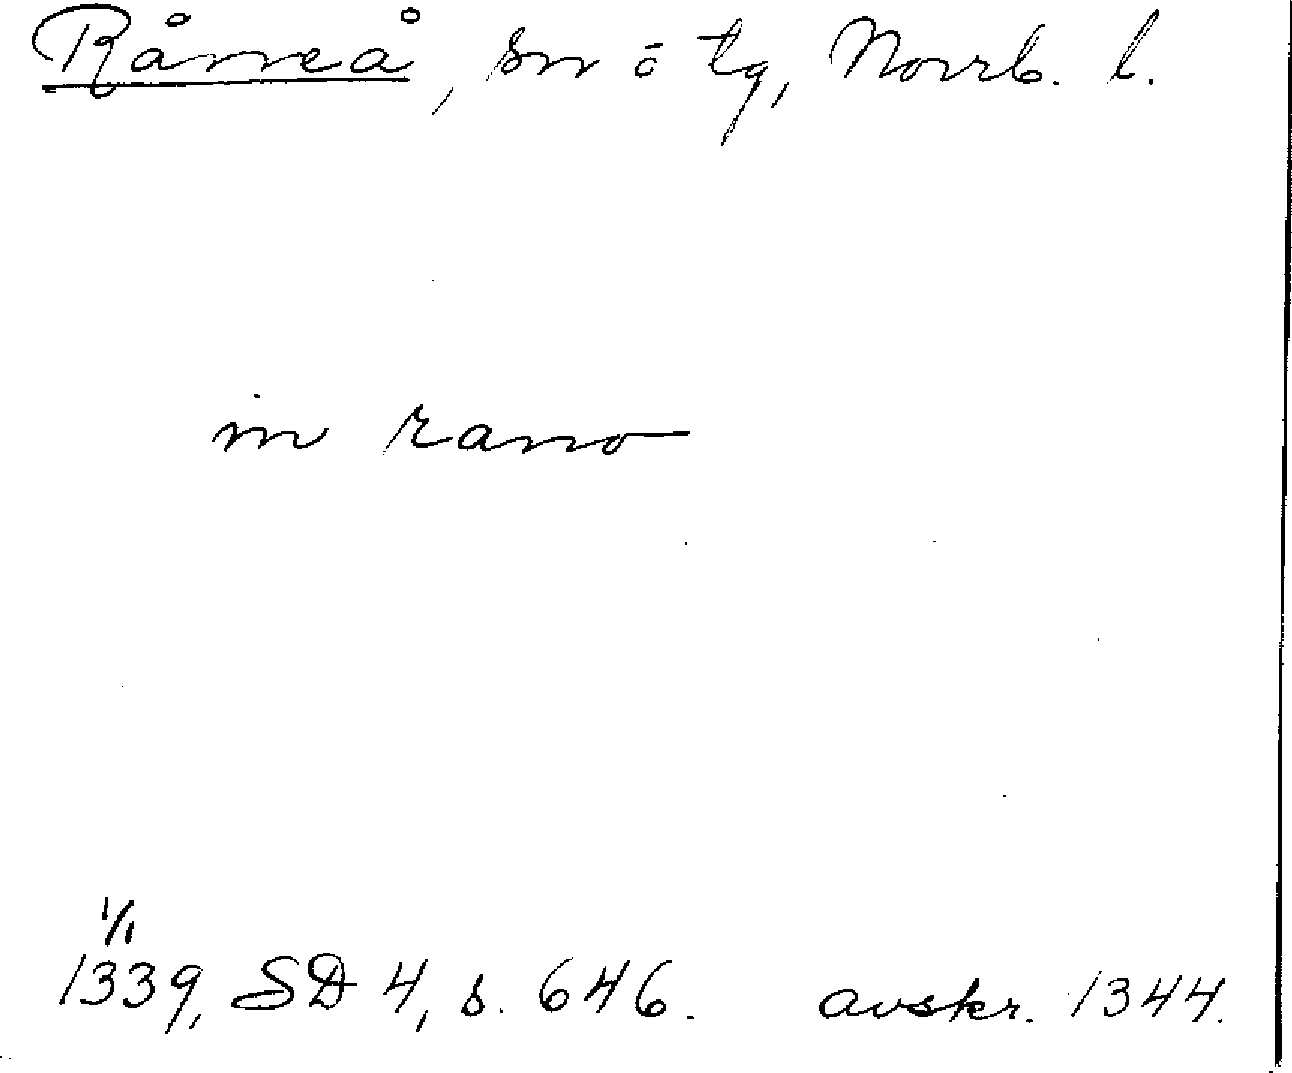 Råneå, sn o tg, Norrb. l.
in rano
1/1
1339, SD 4, s. 646. avskr. 1344.